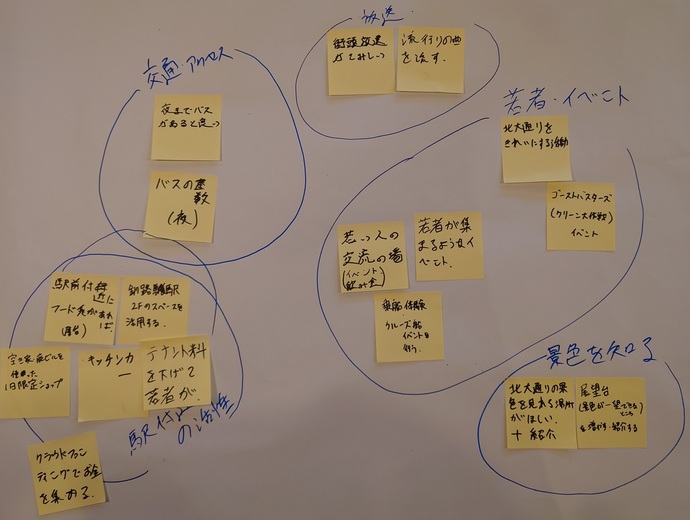 放送
街頭放送
がさみしい
流行りの曲
を流す.
交通・アクセス
夜までバス
があると良い
バスの本
数
(夜)
若者・イベント
北大通りを
きれいにする活動
ゴーストバスターズ
(クリーン大作戦)
イベント
若い人の
交流の場
(イベント)
飲み会
若者が集
まるようなイ
ベント.
乗船体験
クルーズ船
イベントを
行う.
駅前付近に
フード店があれば
(屋台)
釧路駅
2Fのスペースを
活用する.
空き家・廃ビルを
使った
1日限定ショップ
キッチンカ
ー
テナント料
を下げて
若者が.
駅付近
の活性
クラウドファン
ディングでお金
を集める.
景色を知る
北大通りの景
色を見れる場所
がほしい.
+紹介
展望台
(景色が一望できる
ところ)
を増やす・紹介する